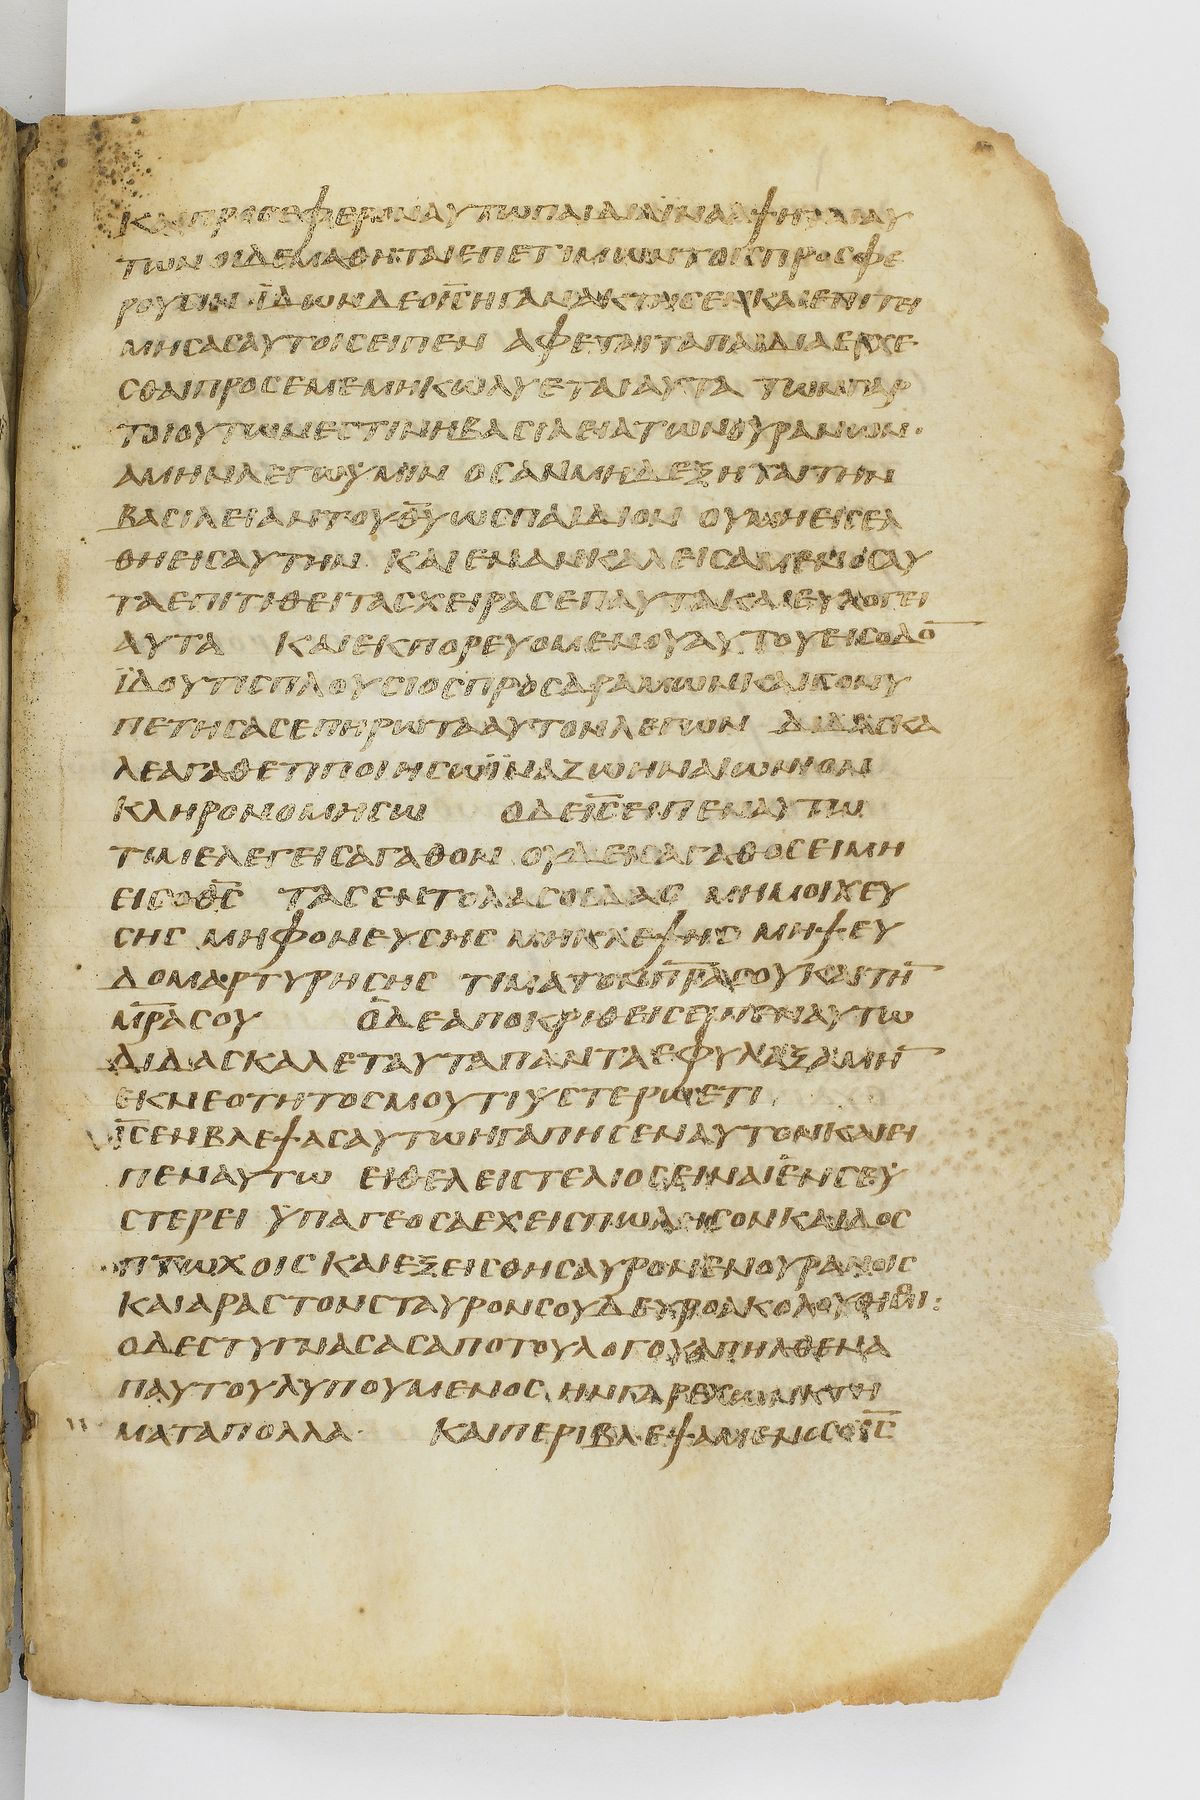 ΚΑΙΠΡΟΣΕΦΕΡΟΝΑΥΤΩΠΑΙΔΙΑΙΝΑΑΨΗΤΑΙΑΥ
ΤΩΝΟΙΔΕΜΑΘΗΤΑΙΕΠΕΤΙΜΩΝΤΟΙΣΠΡΟΣΦΕ
ΡΟΥΣΙΝ· ΪΔΩΝΔΕΟΙ̅Σ̅ΗΓΑΝΑΚΤΗΣΕΝΚΑΙΕΠΙΤΕΙ
ΜΗΣΑΣΑΥΤΟΙΣΕΙΠΕΝ ΑΦΕΤΑΙΤΑΠΑΙΔΙΑΕΡΧΕ
ΣΘΑΙΠΡΟΣΕΜΕΜΗΚΩΛΥΕΤΑΙΑΥΤΑ ΤΩΝΓΑΡ
ΤΟΙΟΥΤΩΝΕΣΤΙΝΗΒΑΣΙΛΕΙΑΤΩΝΟΥΡΑΝΩΝ·
ΑΜΗΝΛΕΓΩΥΜΙΝ ΟΣΑΝΜΗΔΕΞΗΤΑΙΤΗΝ
ΒΑΣΙΛΕΙΑΝΤΟΥΘ̅Υ̅ΩΣΠΑΙΔΙΟΝ ΟΥΜΗΕΙΣΕΛ
ΘΗΕΙΣΑΥΤΗΝ ΚΑΙΕΝΑΝΚΑΛΕΙΣΑΜΕΝΟΣΑΥ
ΤΑΕΠΙΤΙΘΕΙΤΑΣΧΕΙΡΑΣΕΠΑΥΤΑΚΑΙΕΥΛΟΓΕΙ
ΑΥΤΑ ΚΑΙΕΚΠΟΡΕΥΟΜΕΝΟΥΑΥΤΟΥΕΙΣΟΔΟ̅
ΪΔΟΥΤΙΣΠΛΟΥΣΙΟΣΠΡΟΣΔΡΑΜΩΝΚΑΙΓΟΝΥ
ΠΕΤΗΣΑΣΕΠΗΡΩΤΑΑΥΤΟΝΛΕΓΩΝ ΔΙΔΑΣΚΑ
ΛΕΑΓΑΘΕΤΙΠΟΙΗΣΩΪΝΑΖΩΗΝΑΙΩΝΙΟΝ
ΚΛΗΡΟΝΟΜΗΣΩ ΟΔΕΙ̅Σ̅ΕΙΠΕΝΑΥΤΩ
ΤΙΜΕΛΕΓΕΙΣΑΓΑΘΟΝ ΟΥΔΕΙΣΑΓΑΘΟΣΕΙΜΗ
ΕΙΣΟΘ̅Σ̅ ΤΑΣΕΝΤΟΛΑΣΟΙΔΑΣ ΜΗΜΟΙΧΕΥ
ΣΗΣ ΜΗΦΟΝΕΥΣΗΣ ΜΗΚΛΕΨΗΣ ΜΗΨΕΥ
ΔΟΜΑΡΤΥΡΗΣΗΣ ΤΙΜΑΤΟΝΠ̅Ρ̅Α̅ΣΟΥΚΑΙΤΗ̅
Μ̅Ρ̅Α̅ΣΟΥ ΟΔΕΑΠΟΚΡΙΘΕΙΣΕΙΠΕΝΑΥΤΩ
ΔΙΔΑΣΚΑΛΕΤΑΥΤΑΠΑΝΤΑΕΦΥΛΑΞΑΜΗ̅
ΕΚΝΕΟΤΗΤΟΣΜΟΥΤΙΥΣΤΕΡΩΕΤΙ
Ι̅Σ̅ΕΝΒΛΕΨΑΣΑΥΤΩΗΓΑΠΗΣΕΝΑΥΤΟΝΚΑΙΕΙ
ΠΕΝΑΥΤΩ ΕΙΘΕΛΕΙΣΤΕΛΙΟΣΕΙΝΑΙΕΝΣΕΥ
ΣΤΕΡΕΙ ΫΠΑΓΕΟΣΑΕΧΕΙΣΠΩΛΗΣΟΝΚΑΙΔΟΣ
ΠΤΩΧΟΙΣ ΚΑΙΕΞΕΙΣΘΗΣΑΥΡΟΝΕΝΟΥΡΑΝΟΙΣ
ΚΑΙΑΡΑΣΤΟΝΣΤΑΥΡΟΝΣΟΥΔΕΥΡΟΑΚΟΛΟΥΘΙΜΟΙ:
ΟΔΕΣΤΥΓΝΑΣΑΣΑΠΟΤΟΥΛΟΓΟΥΑΠΗΛΘΕΝΑ
ΠΑΥΤΟΥΛΥΠΟΥΜΕΝΟΣ ΗΝΓΑΡΕΧΩΝΚΤΗ
ΜΑΤΑΠΟΛΛΑ ΚΑΙΠΕΡΙΒΛΕΨΑΜΕΝΟΣΟΙ̅Σ̅